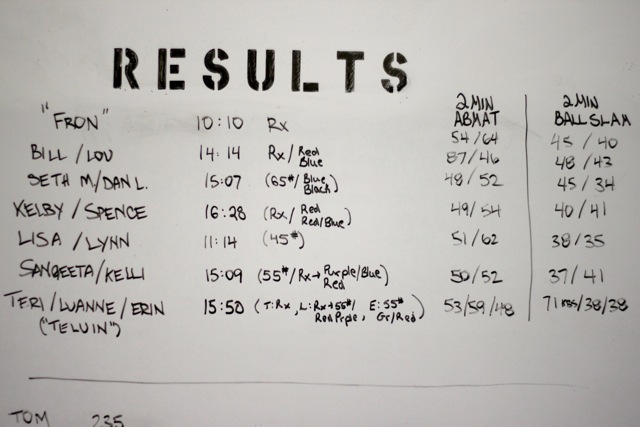 RESULTS
2 MIN ABMAT 2 MIN BALL SLAM
"FRON" 10:10 Rx 54/64 45/40
BILL/LOU 14:14 Rx/Red Blue 87/46 48/43
SETH M/DAN L. 15:07 (65#/Blue Black) 48/52 45/34
KELBY/SPENCE 16:28 (Rx/Red Red/Blue) 49/54 40/41
LISA/LYNN 11:14 (45#) 51/62 38/35
SANGEETA/KELLI 15:09 (55#/Rx→Purple/Blue Red) 50/52 37/41
TERI/LUANNE/ERIN 15:50 (T:Rx, L:Rx→55#/ Red Prple, E:55# Gr/Red) 53/59/48 71/38/38
("TELUIN")
TOM 235